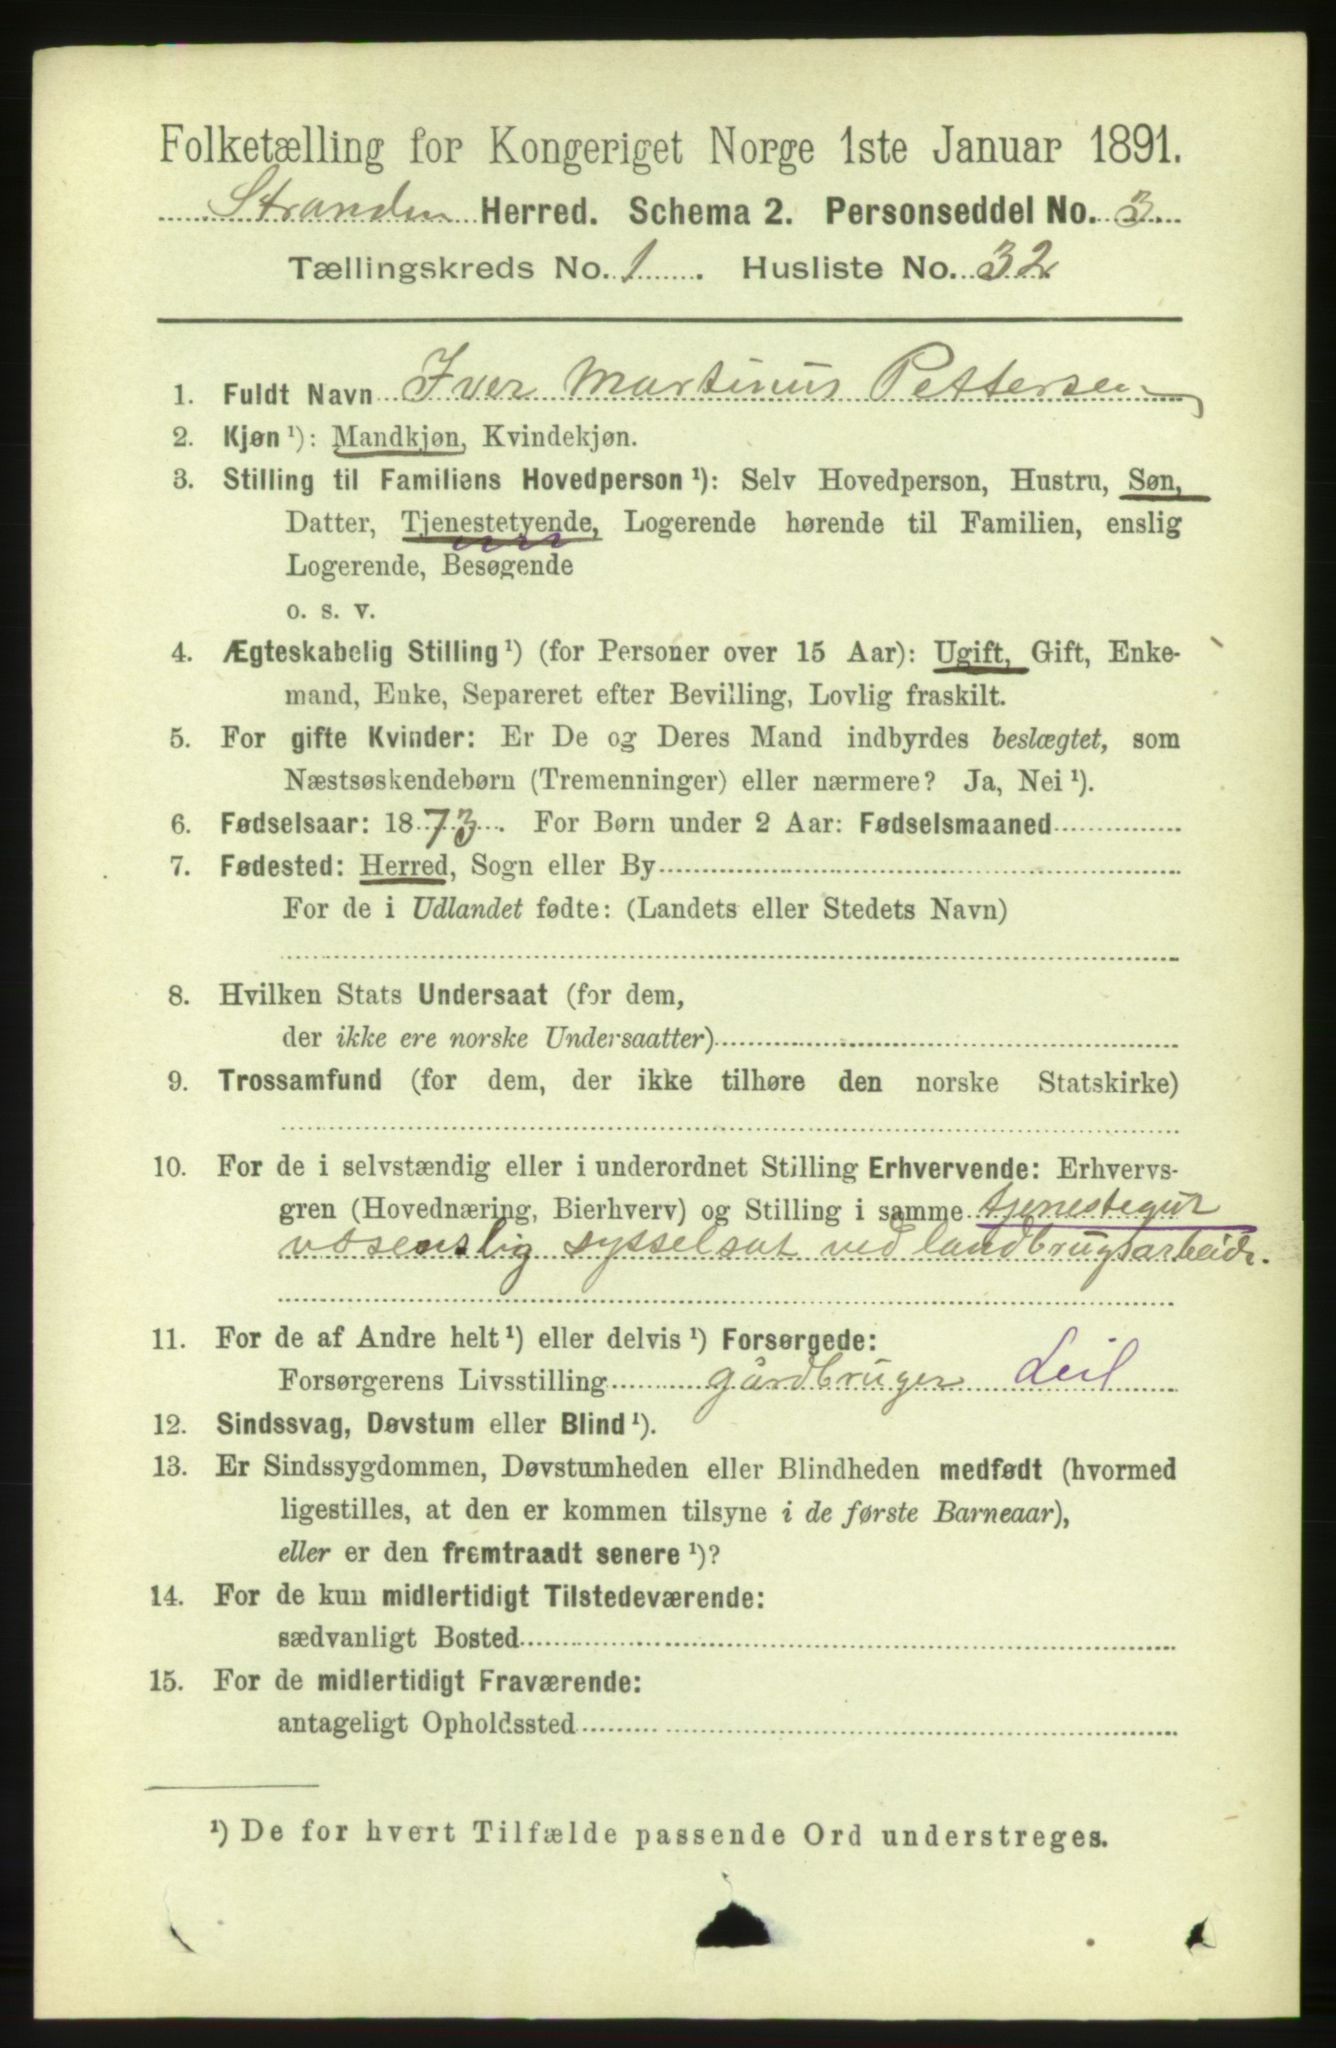 Folketælling for Kongeriget Norge 1ste Januar 1891.
Stranden Herred. Schema 2. Personseddel No. 3.
Tællingskreds No. 1. Husliste No. 32
1. Fuldt Navn Iver Martinus Pettersen
2. Kjøn ¹): Mandkjøn, Kvindekjøn.
3. Stilling til Familiens Hovedperson ¹): Selv Hovedperson, Hustru, Søn,
Datter, Tjenestetyende, Logerende hørende til Familien, enslig
Logerende, Besøgende
o. s. v.
4. Ægteskabelig Stilling ¹) (for Personer over 15 Aar): Ugift, Gift, Enke-
mand, Enke, Separeret efter Bevilling, Lovlig fraskilt.
5. For gifte Kvinder: Er De og Deres Mand indbyrdes beslægtet, som
Næstsøskendebørn (Tremenninger) eller nærmere? Ja, Nei ¹).
6. Fødselsaar: 1873. For Børn under 2 Aar: Fødselsmaaned
7. Fødested: Herred, Sogn eller By
For de i Udlandet fødte: (Landets eller Stedets Navn)
8. Hvilken Stats Undersaat (for dem,
der ikke ere norske Undersaatter)
9. Trossamfund (for dem, der ikke tilhøre den norske Statskirke)
10. For de i selvstændig eller i underordnet Stilling Erhvervende: Erhvervs-
gren (Hovednæring, Bierhverv) og Stilling i samme tjenestegut
væsenslig sysselsat ved landbrugsarbeide.
11. For de af Andre helt ¹) eller delvis ¹) Forsørgede:
Forsørgerens Livsstilling gårdbruger Leil
12. Sindssvag, Døvstum eller Blind ¹).
13. Er Sindssygdommen, Døvstumheden eller Blindheden medfødt (hvormed
ligestilles, at den er kommen tilsyne i de første Barneaar),
eller er den fremtraadt senere ¹)?
14. For de kun midlertidigt Tilstedeværende:
sædvanligt Bosted
15. For de midlertidigt Fraværende:
antageligt Opholdssted
¹) De for hvert Tilfælde passende Ord understreges.